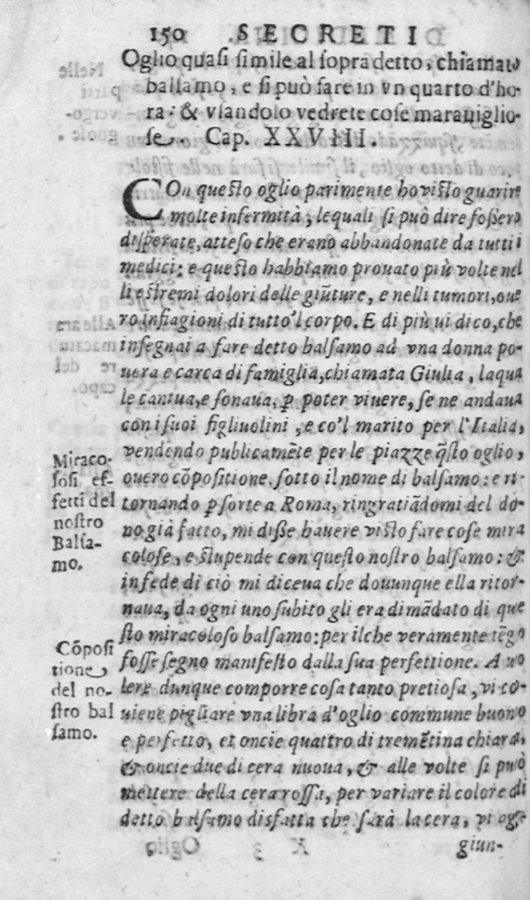 150 SECRETI
Oglio quasi simile al sopradetto, chiamato
balsamo, e si può fare in vn quarto d'ho-
ra: & vsandolo vedrete cose marauiglio-
se. Cap. XXVIIII.
COn questo oglio parimente ho visto guarire
molte infermità, lequali si può dire fossero
disperate, atteso che erano abbandonate da tutti i
medici: e questo habbiamo prouato più volte nel
li estremi dolori delle giũture, e nelli tumori, oue
ro infiagioni di tutto'l corpo. E di più ui dico, che
insegnai a fare detto balsamo ad vna donna po-
uera e carca di famiglia, chiamata Giulia, laqua
le cantua, e sonaua, ꝑ poter viuere, se ne andaua
con i suoi figliuolini, e co'l marito per l'Italia,
vendendo publicamẽte per le piazze q̃sto oglio,
ouero cõpositione, sotto il nome di balsamo: e ri
tornando ꝑ sorte a Roma, ringratiãdomi del do-
no già fatto, mi disse hauere visto fare cose mira
colose, e stupende con questo nostro balsamo: &
in fede di ciò mi diceua che douunque ella ritor-
naua, da ogni uno subito gli era dimãdato di que
sto miracoloso balsamo: per ilche veramente tẽgo
fosse segno manifesto dalla sua perfettione. A uo
lere dunque comporre cosa tanto pretiosa, vi co-
uiene pigliare vna libra d'oglio commune buono
e perfetto, et oncie quattro di tremẽtina chiara,
& oncie due di cera nuoua, & alle volte si può
mettere della cera rossa, per variare il colore di
detto balsamo disfatta che sarà la cera, vi ag-
giun-
Miraco-
losi ef-
fetti del
nostro
Balsa-
mo.
Cõposi
tione
del no-
stro bal
samo.